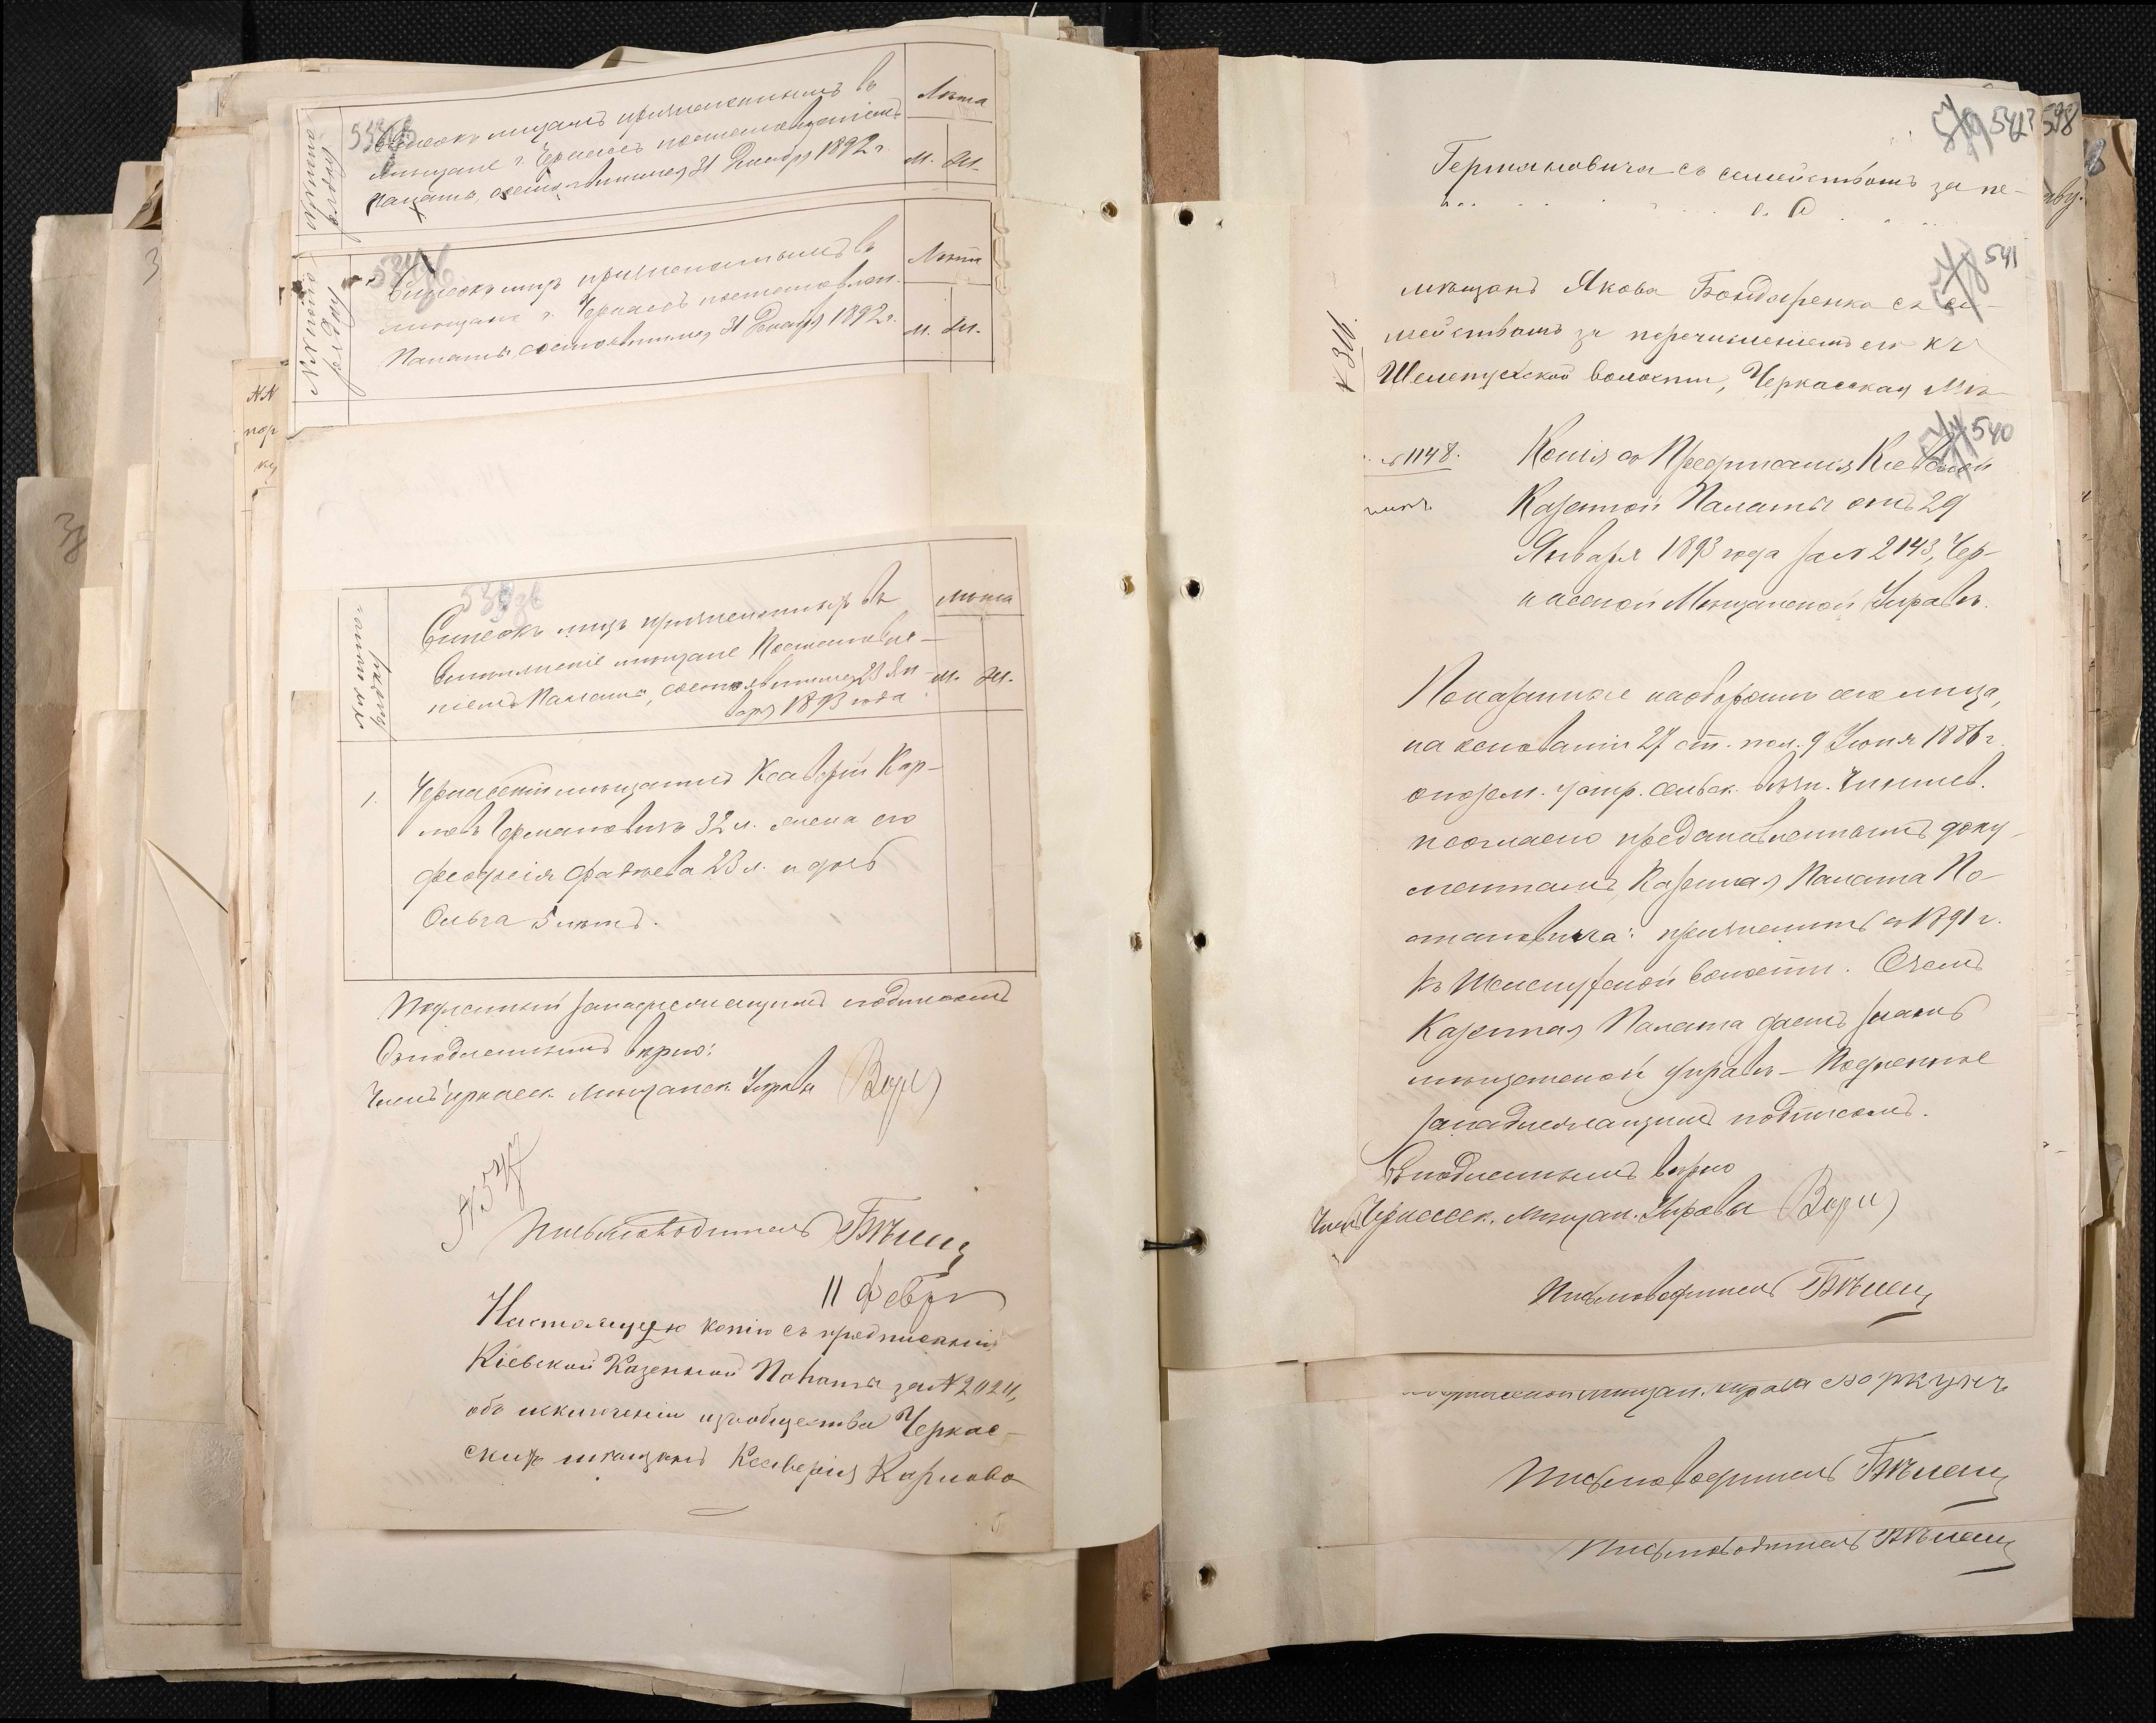 Списокъ лицамъ причисленнымъ въ
мѣщане г. Черкасъ постановленіемъ
Палаты, состоявшимся 31 Декабря 1892 г.
Лѣта
М. Ж.
Списокъ лицъ причисленнымъ въ
мѣщане г. Черкасъ постановлен.
Палаты состоявшимся 31 Декабря 1892 г.
Лѣта
М. Ж.
Списокъ лицъ причисленныхъ въ
мѣщане Постановле-
ніемъ Палаты, состоявшимся 23 Ян-
варя 1893 года
Лѣта
М. Ж.
1. Черкасскій мѣщанинъ Ксаверій Кар-
ловъ Германовичъ 32 л. жена его
Феодосія 23 л. и дочь
Ольга 5 лѣтъ.
Подлинный за надлежащимъ подписомъ
Съ подлиннымъ вѣрно:
Членъ Черкасск. Мѣщанск. Управы
Письмоводитель
11 Февр
Настоящую копію съ предписанія
Кіевской Казенной Палаты за № 2024,
объ исключеніи изъ общества Черкас-
скихъ мѣщанъ Ксаверія Карлова
542 598
Германовича съ семействомъ за пе-
541
№ 316.
мѣщанъ Якова Бондаренка съ се-
мействомъ за перечисленіемъ его къ
Шелепухской волости, Черкасская Мѣ-
540
№ 1148.
Копія съ Предписанія Кіевской
Казенной Палаты отъ 29
Января 1893 года за № 2143, Чер-
касской Мѣщанской Управѣ.
Показанные на оборотѣ сего лица,
на основаніи 27 ст. пол. 9 Іюня 1886 г.
о позем. устр. сельск. вѣчн. Чиншев.
и согласно представленнымъ доку-
ментамъ, Казенная Палата По-
становила: причислить съ 1891 г.
къ Шелепухской волости. О чемъ
Казенная Палата даетъ знать
мѣщанской управѣ – Подлинное
за надлежащимъ подписомъ.
Съ подлиннымъ вѣрно
Членъ Черкасск. Мѣщан. Управы
Письмоводитель
Письмоводитель
Письмоводитель